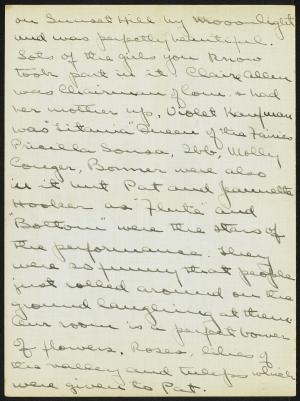 on Sunset Hill by Mooonlight
and was perfectly beautiful.
Lots of the girls you know
took part in it. Claire Allen
was Chairman of Com. & had
her mother up, Violet Kaufman
was "Titania" Queen of the Fairies
Priscilla Sousa, Ibb, Molly
Conger, Bonner were also
in it but Pat and Jeannette
Hooker as "Flute" and
"Bottom" were the stars of
the performance. They
were so funny that people
just rolled around on the
ground laughing at them.
Our room is a perfect bower
of flowers. Roses, lilies of
the valley and tulips which
were given to Pat.